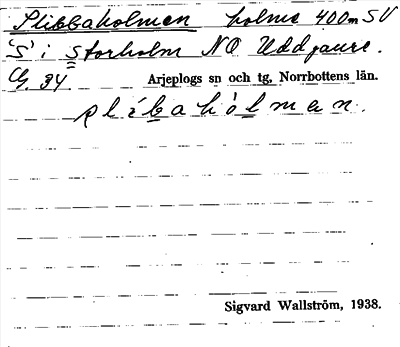 Slibbaholmen holme 400m SV
'S' i Storholm NO Uddjaure.
Cg 34 Arjeplogs sn och tg, Norrbottens län.
slíbahòlmen.
Sigvard Wallström, 1938.